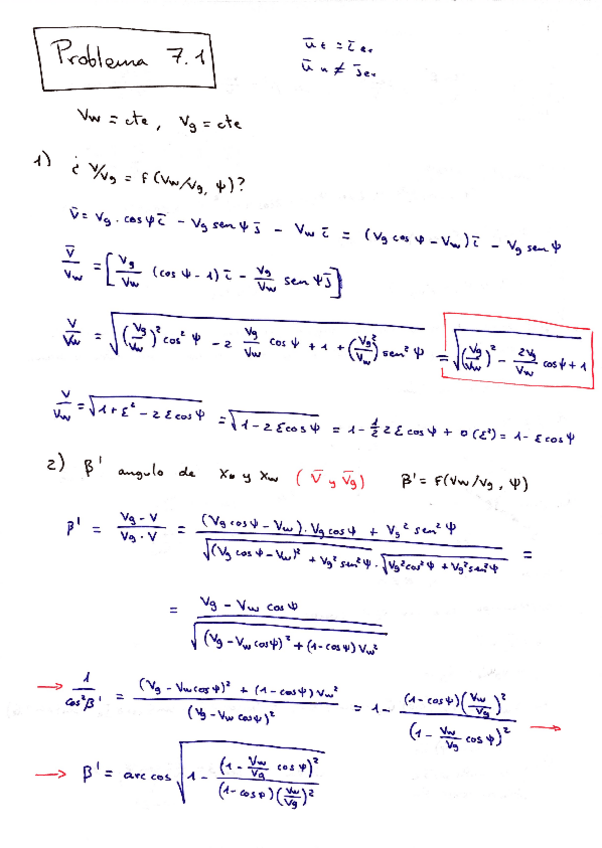 Problema 7.1
ūt = īer
ūn ≠ j̄er
Vw = cte, Vg = cte
1) ¿ V/Vg = f(Vw/Vg, ψ)?
v̄ = Vg · cos ψ ī - Vg sen ψ j̄ - Vw ī = (Vg cos ψ - Vw) ī - Vg sen ψ
V̄/Vw = [Vg/Vw (cos ψ - 1) ī - Vg/Vw sen ψ j̄]
V/Vw = √((Vg/Vw)² cos² ψ - 2 Vg/Vw cos ψ + 1 + (Vg²/Vw) sen² ψ) = √((Vg/Vw)² - 2Vg/Vw cos ψ + 1)
V/Vw = √(1 + ε² - 2 ε cos ψ) = √(1 - 2 ε cos ψ) = 1 - 1/2 2 ε cos ψ + o(ε²) = 1 - ε cos ψ
2) β' angulo de y xw (V̄ y V̄g) β' = f(Vw/Vg, ψ)
β' = Vg - V / Vg · V = (Vg cos ψ - Vw) · Vg cos ψ + Vg² sen² ψ / √((Vg cos ψ - Vw)² + Vg² sen² ψ) · √(Vg² cos² ψ + Vg² sen² ψ) =
= Vg - Vw cos ψ / √((Vg - Vw cos ψ)² + (1 - cos ψ) Vw²)
→ 1/cos² β' = (Vg - Vw cos ψ)² + (1 - cos ψ) Vw² / (Vg - Vw cos ψ)² = 1 - (1 - cos ψ)(Vw/Vg)² / (1 - Vw/Vg cos ψ)² →
→ β' = arc cos √(1 - (1 - Vw/Vg cos ψ)² / (1 - cos ψ)(Vw/Vg)²)